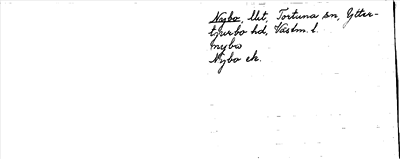 Nybo, llt, Tortuna sn, Ytter-
tjurbo hd, Västm. l.
nybω
Nybo ek.